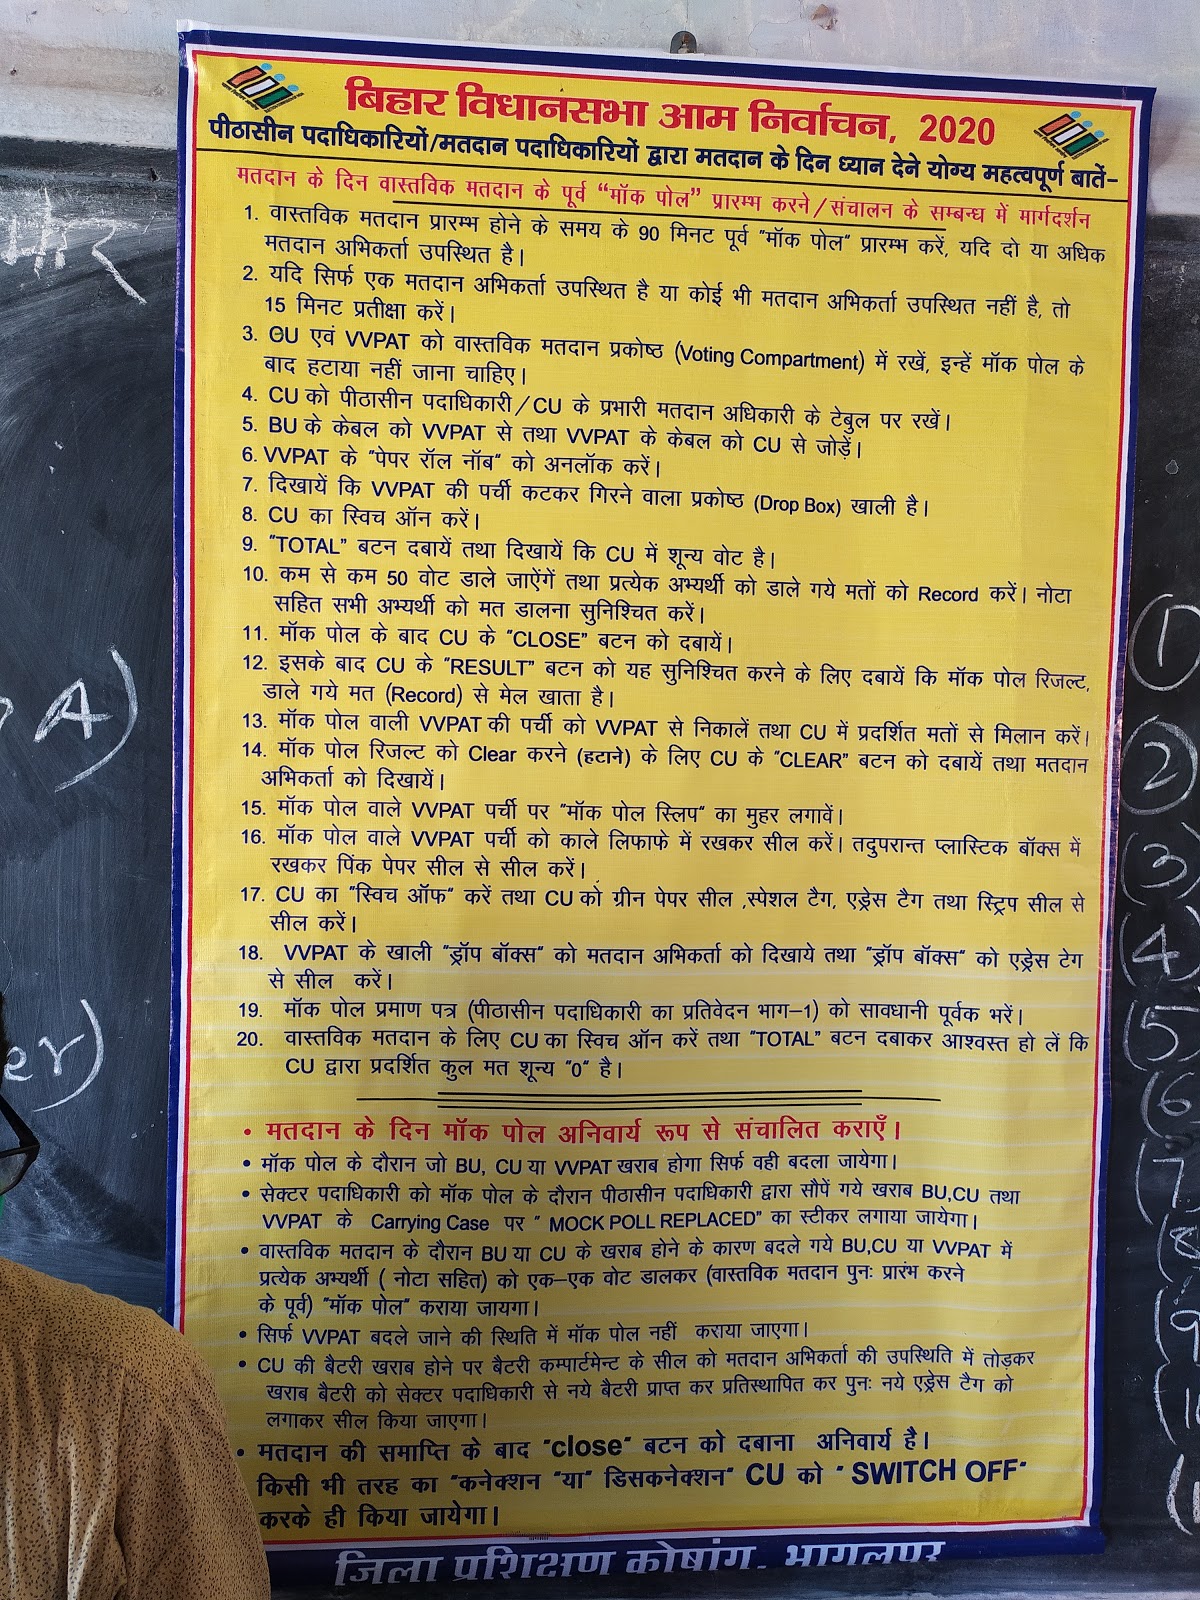 बिहार विधानसभा आम निर्वाचन, 2020
पीठासीन पदाधिकारियों/मतदान पदाधिकारियों द्वारा मतदान के दिन ध्यान देने योग्य महत्वपूर्ण बातें–
मतदान के दिन वास्तविक मतदान के पूर्व “मॉक पोल” प्रारम्भ करने/संचालन के सम्बन्ध में मार्गदर्शन
1. वास्तविक मतदान प्रारम्भ होने के समय के 90 मिनट पूर्व "मॉक पोल" प्रारम्भ करें, यदि दो या अधिक
मतदान अभिकर्ता उपस्थित है।
2. यदि सिर्फ एक मतदान अभिकर्ता उपस्थित है या कोई भी मतदान अभिकर्ता उपस्थित नहीं है, तो
15 मिनट प्रतीक्षा करें।
3. ΘU एवं VVPAT को वास्तविक मतदान प्रकोष्ठ (Voting Compartment) में रखें, इन्हें मॉक पोल के
बाद हटाया नहीं जाना चाहिए।
4. CU को पीठासीन पदाधिकारी/CU के प्रभारी मतदान अधिकारी के टेबुल पर रखें।
5. BU के केबल को VVPAT से तथा VVPAT के केबल को CU से जोड़ें।
6. VVPAT के "पेपर रॉल नॉब" को अनलॉक करें।
7. दिखायें कि VVPAT की पर्ची कटकर गिरने वाला प्रकोष्ठ (Drop Box) खाली है।
8. CU का स्विच ऑन करें।
9. "TOTAL" बटन दबायें तथा दिखायें कि CU में शून्य वोट है।
10. कम से कम 50 वोट डाले जाऐंगें तथा प्रत्येक अभ्यर्थी को डाले गये मतों को Record करें। नोटा
सहित सभी अभ्यर्थी को मत डालना सुनिश्चित करें।
11. मॉक पोल के बाद CU के "CLOSE" बटन को दबायें।
12. इसके बाद CU के "RESULT" बटन को यह सुनिश्चित करने के लिए दबायें कि मॉक पोल रिजल्ट,
डाले गये मत (Record) से मेल खाता है।
13. मॉक पोल वाली VVPAT की पर्ची को VVPAT से निकालें तथा CU में प्रदर्शित मतों से मिलान करें।
14. मॉक पोल रिजल्ट को Clear करने (हटाने) के लिए CU के "CLEAR" बटन को दबायें तथा मतदान
अभिकर्ता को दिखायें।
15. मॉक पोल वाले VVPAT पर्ची पर "मॉक पोल स्लिप" का मुहर लगावें।
16. मॉक पोल वाले VVPAT पर्ची को काले लिफाफे में रखकर सील करें। तदुपरान्त प्लास्टिक बॉक्स में
रखकर पिंक पेपर सील से सील करें।
17. CU का "स्विच ऑफ" करें तथा CU को ग्रीन पेपर सील ,स्पेशल टैग, एड्रेस टैग तथा स्ट्रिप सील से
सील करें।
18. VVPAT के खाली "ड्रॉप बॉक्स" को मतदान अभिकर्ता को दिखाये तथा "ड्रॉप बॉक्स" को एड्रेस टेग
से सील करें।
19. मॉक पोल प्रमाण पत्र (पीठासीन पदाधिकारी का प्रतिवेदन भाग–1) को सावधानी पूर्वक भरें।
20. वास्तविक मतदान के लिए CU का स्विच ऑन करें तथा "TOTAL" बटन दबाकर आश्वस्त हो लें कि
CU द्वारा प्रदर्शित कुल मत शून्य "0" है।
• मतदान के दिन मॉक पोल अनिवार्य रूप से संचालित कराएँ।
• मॉक पोल के दौरान जो BU, CU या VVPAT खराब होगा सिर्फ वही बदला जायेगा।
• सेक्टर पदाधिकारी को मॉक पोल के दौरान पीठासीन पदाधिकारी द्वारा सौपें गये खराब BU,CU तथा
VVPAT के Carrying Case पर " MOCK POLL REPLACED" का स्टीकर लगाया जायेगा।
• वास्तविक मतदान के दौरान BU या CU के खराब होने के कारण बदले गये BU,CU या VVPAT में
प्रत्येक अभ्यर्थी ( नोटा सहित) को एक–एक वोट डालकर (वास्तविक मतदान पुनः प्रारंभ करने
के पूर्व) "मॉक पोल" कराया जायगा।
• सिर्फ VVPAT बदले जाने की स्थिति में मॉक पोल नहीं कराया जाएगा।
• CU की बैटरी खराब होने पर बैटरी कम्पार्टमेन्ट के सील को मतदान अभिकर्ता की उपस्थिति में तोड़कर
खराब बैटरी को सेक्टर पदाधिकारी से नये बैटरी प्राप्त कर प्रतिस्थापित कर पुनः नये एड्रेस टैग को
लगाकर सील किया जाएगा।
• मतदान की समाप्ति के बाद "close" बटन को दबाना अनिवार्य है।
किसी भी तरह का "कनेक्शन "या" डिसकनेक्शन" CU को " SWITCH OFF"
करके ही किया जायेगा।
जिला प्रशिक्षण कोषांग, भागलपुर
A)
er)
1
2
3
4
5
6
7
8
9